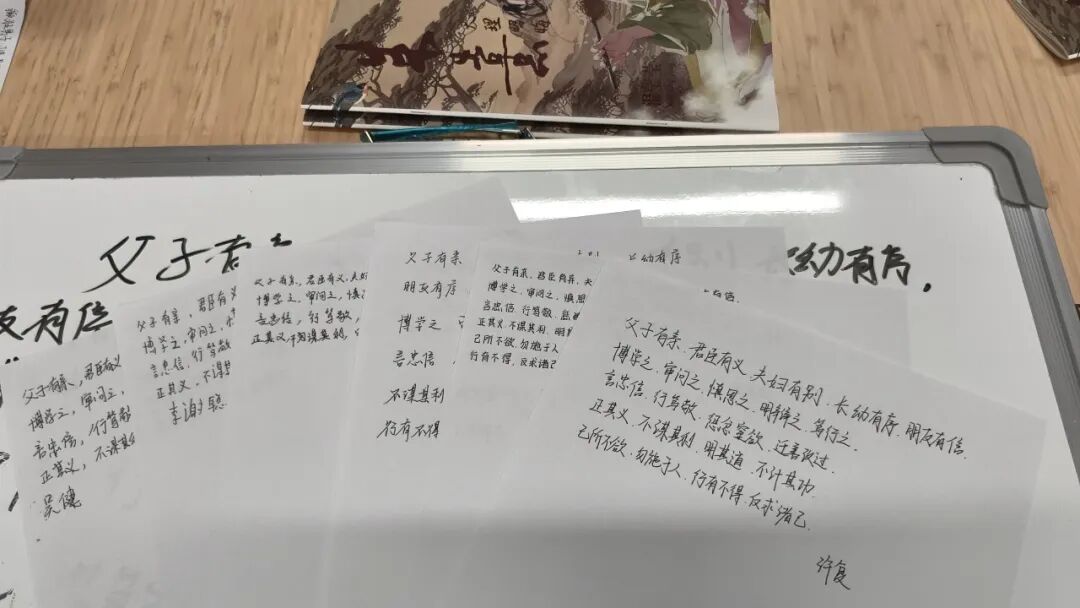 父子有
长幼有序,
友有信
父子有亲、君臣有义、夫妇有别、长幼有序、朋友有信.
博学之、审问之、慎思之、明辨之、笃行之.
言忠信、行笃敬、惩忿窒欲、迁善改过.
正其义、不谋其利、明其道、不计其功.
己所不欲、勿施于人、行有不得、反求诸己.
许复
父子有亲、君臣有义、夫
博学之、审问之、慎思
言忠信、行笃敬、惩
正其义、不谋其利、明
己所不欲、勿施于人
行有不得、反求诸己
长幼有序
有信.
父子有亲
朋友有序
博学之
言忠信,
不谋其利
行有不得
父子有亲,君臣有义,夫妇
博学之,审问之,慎
言忠信,行笃敬,
正其义,不谋其利,
父子有亲,君臣有义
博学之,审问之,
言忠信,行笃敬
正其义,不谋
父子有亲,君臣有义
博学之,审问之,
言忠信,行笃敬
正其义,不谋其